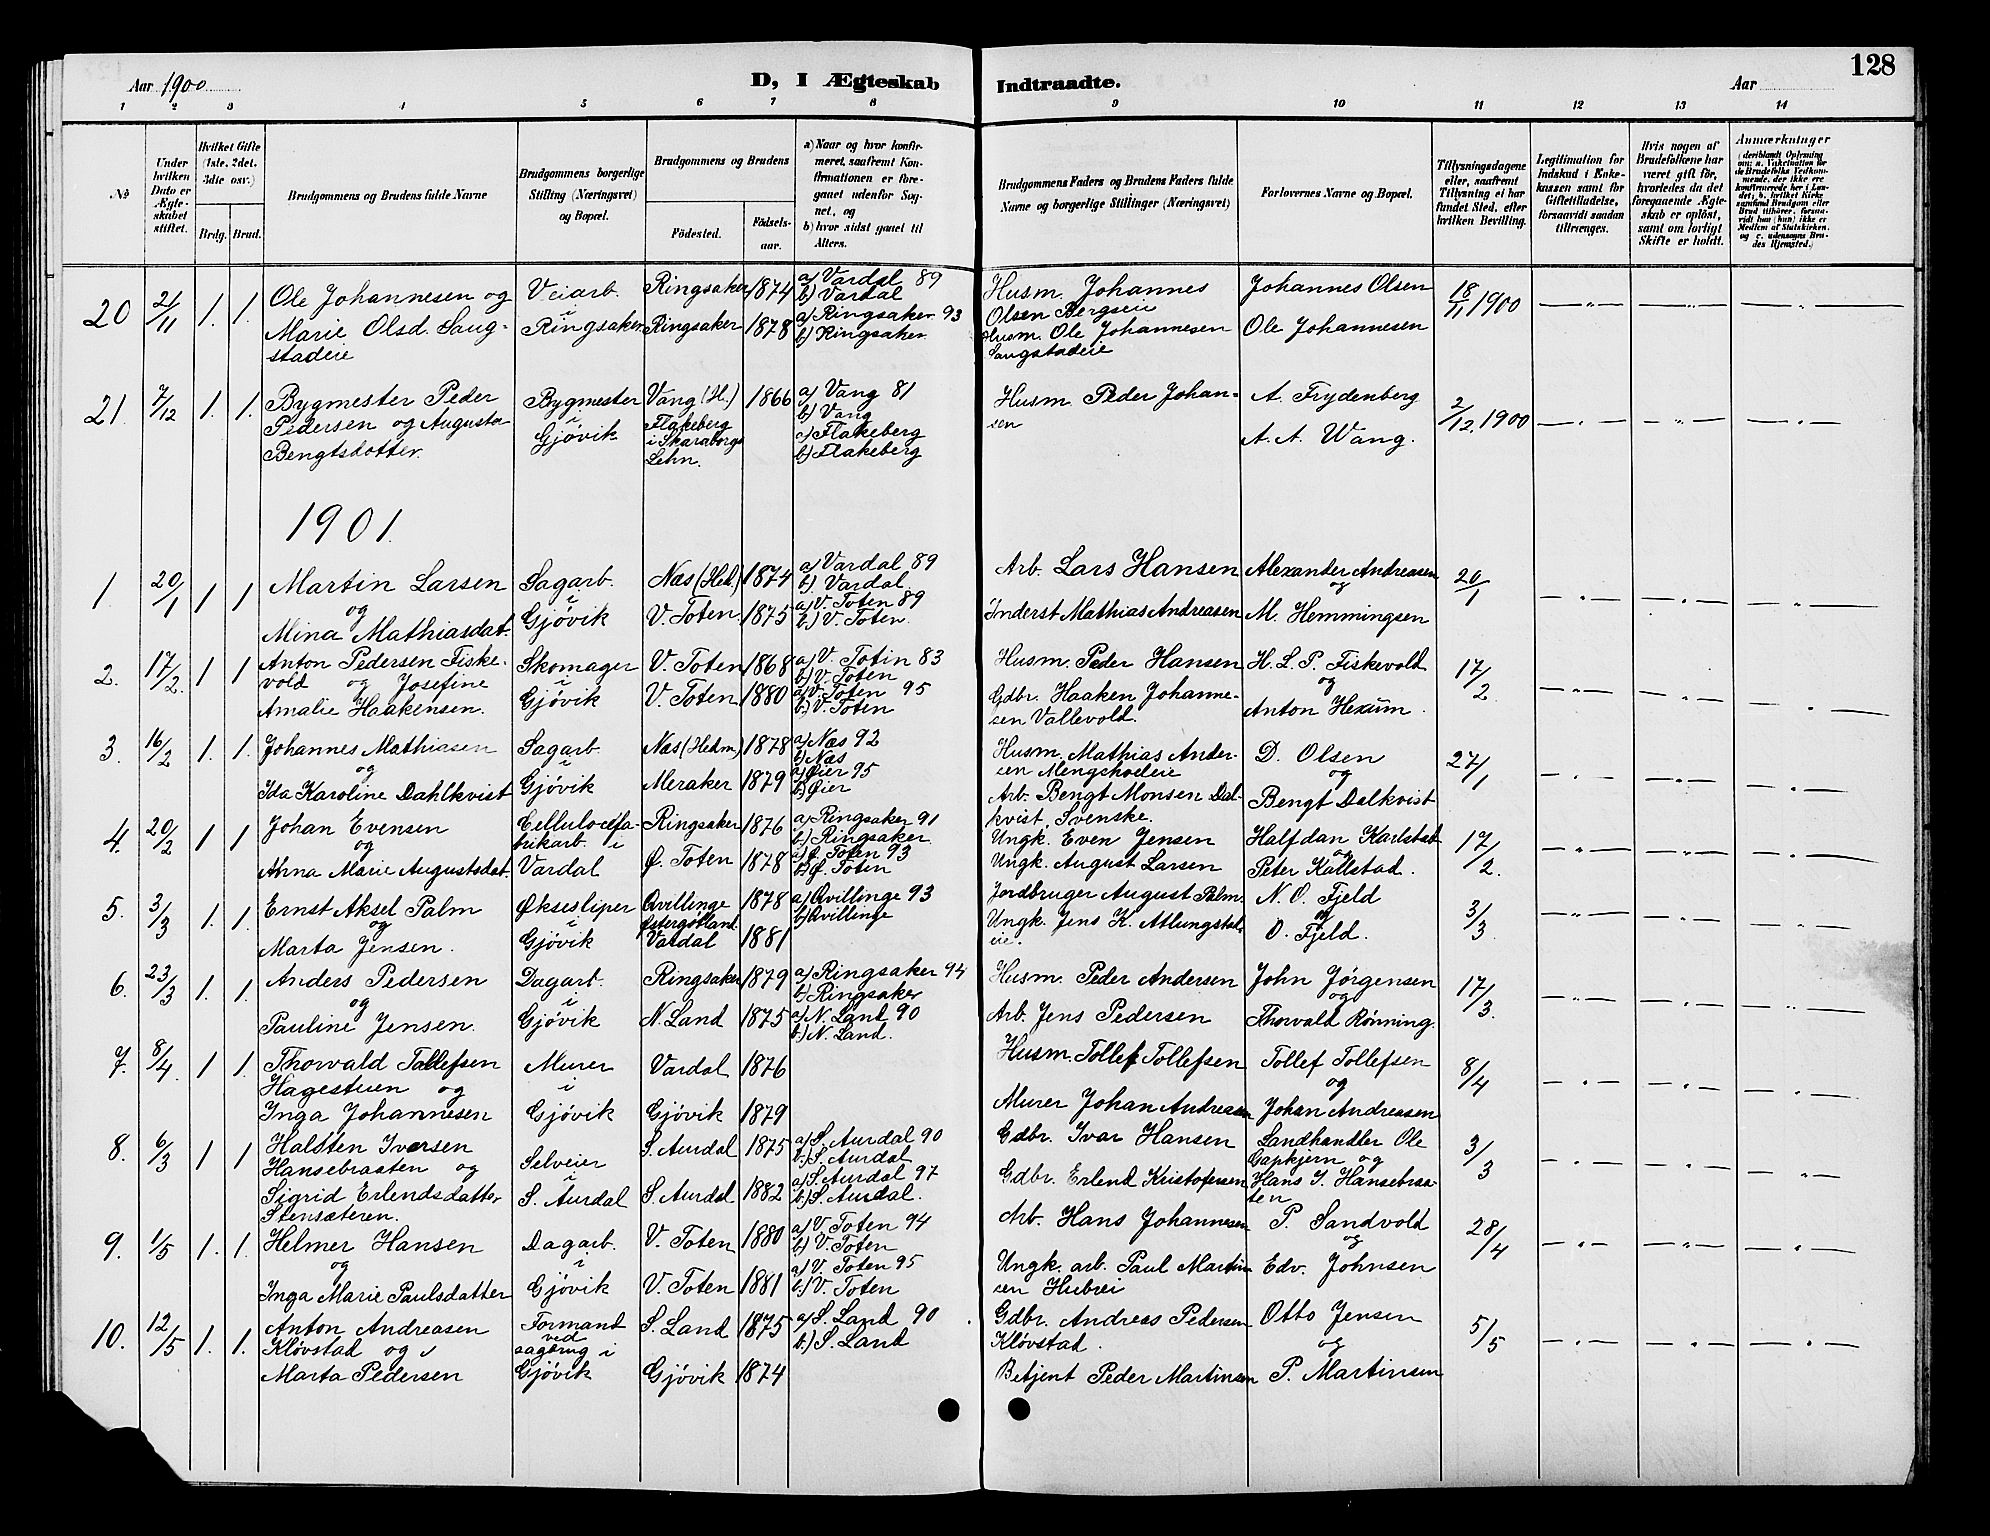 128
Aar 1900
D, I Ægteskab Indtraadte.
Aar
1 2 3 4 5 6 7 8 9 10 11 12 13 14
No
Under hvilken Dato er Ægteskabet stiftet.
Hvilket Gifte (1ste, 2det, 3die osv.)
Brdg. Brud.
Brudgommens og Brudens fulde Navne
Brudgommens borgerlige Stilling (Næringsvei) og Bopæl.
Brudgommens og Brudens
Födested. Födselsaar.
a) Naar og hvor konfirmeret, saafremt Konfirmationen er foregaaet udenfor Sognet, og
b) hvor sidst gaaet til Alters.
Brudgommens Faders og Brudens Faders fulde Navne og borgerlige Stillinger (Næringsvei)
Forlovernes Navne og Bopæl.
Tillysningsdagene eller, saafremt Tillysning ei har fundet Sted, efter hvilken Bevilling.
Legitimation for Indskud i Enkekassen samt for Giftetilladelse, forsaavidt saadan tiltrænges.
Hvis nogen af Brudefolkene har været gift før, hvorledes da det foregaaende Ægteskab er opløst, samt om lovligt Skifte er holdt.
Anmærkninger
20 21/11 1. 1.
Ole Johannesen og
Marie Olsd. Saug-
stadeie
Veiarb.
i
Ringsaker
Ringsaker 1874
Ringsaker 1878
a) Vardal 89
b) Vardal
a) Ringsaker 93
b) Ringsaker
Husm. Johannes
Olsen Bergseie
Husm. Ole Johannesen
Saugstadeie
Johannes Olsen
Ole Johannesen
18/11 1900
21. 7/12 1. 1.
Bygmester Peder
Pedersen og Augusta
Bengtsdotter.
Bygmester
i
Gjövik
Vang (H.) 1866
Flakeberg
i Skaraborgs
Lehn.
a) Vang 81
b) Vang
a) Flakeberg
b) Flakeberg
Husm. Peder Johan-
sen
A. Frydenberg
A. A. Wang.
2/12 1900
1901.
1. 20/1 1 1
Martin Larsen
og
Mina Mathiasdat.
Sagarb.
i
Gjövik
Næs (Hed.) 1874
V. Toten 1875
a) Vardal 89
b) Vardal.
a) V. Toten 89
b) V. Toten.
Arb. Lars Hansen
Inderst Mathias Andreasen
Alexander Andreasen
og
M. Hemmingsen
20/1
2. 17/2. 1 1
Anton Pedersen Fiske-
vold og Josefine
Amalie Haakensen.
Skomager
i
Gjövik
V. Toten 1868
V. Toten 1880
a) V. Totin 83
b) V. Toten
a) V. Toten 95
b) V. Toten
Husm. Peder Hansen
Gdbr. Haaken Johanne-
sen Vallevold.
H. L. P. Fiskevold
og
Anton Hexum.
17/2
3. 16/2 1. 1.
Johannes Mathiasen
og
Ida Karoline Dahlkvist
Sagarb.
i
Gjövik
Næs (Hedm) 1878
Meraker 1879
a) Næs 92
b) Næs
a) Øier 95
b) Øier
Husm. Mathias Ander-
sen Mengshoeleie
Arb. Bengt Monsen Dal-
kvist, Svenske.
D. Olsen
og
Bengt Dalkvist
27/1
4. 20/2 1 1
Johan Evensen
og
Anna Marie Augustsdat.
Cellulosefa-
brikarb. i
Vardal
Ringsaker 1876
Ø. Toten 1878
a) Ringsaker 91
b) Ringsaker
a) Ø. Toten 93
b) Ø. Toten
Ungk. Even Jensen
Ungk. August Larsen
Halfdan Karlstad
og
Peter Kallstad.
17/2.
5. 3/3 1. 1.
Ernst Aksel Palm
og
Marta Jensen.
Øksesliper
i
Gjövik
Qvillinge 1878
Østergötland.
Vardal 1881
a) Qvillinge 93
b) Qvillinge
Jordbruger August Palm.
Ungk. Jens K. Atlungstad-
eie.
N. O. Fjeld
og
O. Fjeld.
3/3
6. 23/3 1. 1.
Anders Pedersen
og
Pauline Jensen.
Dagarb.
i
Gjövik
Ringsaker 1879
N. Land 1875
a) Ringsaker 94
b) Ringsaker
a) N. Land 90
b) N. Land.
Husm. Peder Andersen
Arb. Jens Pedersen
John Jörgensen
og
Thorvald Rönning.
17/3.
7. 8/4 1 1.
Thorvald Tollefsen
Hagestuen og
Inga Johannesen
Murer
i
Gjövik
Vardal 1876
Gjövik 1879
Husm. Tollef Tollefsen
Murer Johan Andreasen
Tollef Tollefsen
og
Johan Andreasen
8/4
8. 6/3 1 1
Halsten Iversen
Hansebraaten og
Sigrid Erlendsdatter
Stensæteren.
Selveier
i
S. Aurdal
S. Aurdal 1875
S. Aurdal 1882
a) S. Aurdal 90
b.) S. Aurdal
a) S. Aurdal 97
b.) S. Aurdal.
Gdbr. Ivar Hansen
Gdbr. Erlend Kristofersen
Landhandler Ole
Gapkjern og
Hans I. Hansebraa-
ten
3/3
9. 1/5 1. 1.
Helmer Hansen
og
Inga Marie Paulsdatter
Dagarb.
i
Gjövik
V. Toten 1880
V. Toten 1881
a) V. Toten 94
b) V. Toten
a) V. Toten 95
b) V. Toten
Arb. Hans Johannesen
Ungk. arb. Paul Martin-
sen Hubrei
P. Sandvold
og
Edv. Johnsen
28/4
10. 12/5 1. 1.
Anton Andreasen
Klövstad og
Marta Pedersen
Formand
ved
sagbrug i
Gjövik
S. Land 1875
Gjövik 1874
a) S. Land 90
b.) S. Land
Gdbr. Andreas Pedersen
Klövstad.
Betjent Peder Martinsen
Otto Jensen
og
P. Martinsen
5/5